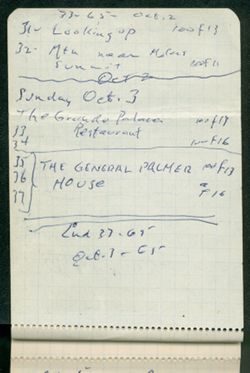 33-65- Oct. 2
31- Looking up 100 f 13
32- Mtn near Molas
Summit 100 f 11
Oct 2
Sunday Oct. 3
The Grande Palace 100 f 13
33 Restaurant
34 100 f 16
35 THE GENERAL PALMER 100 f 13
36 HOUSE
37 f 16
End 33-65
Oct. 3-65